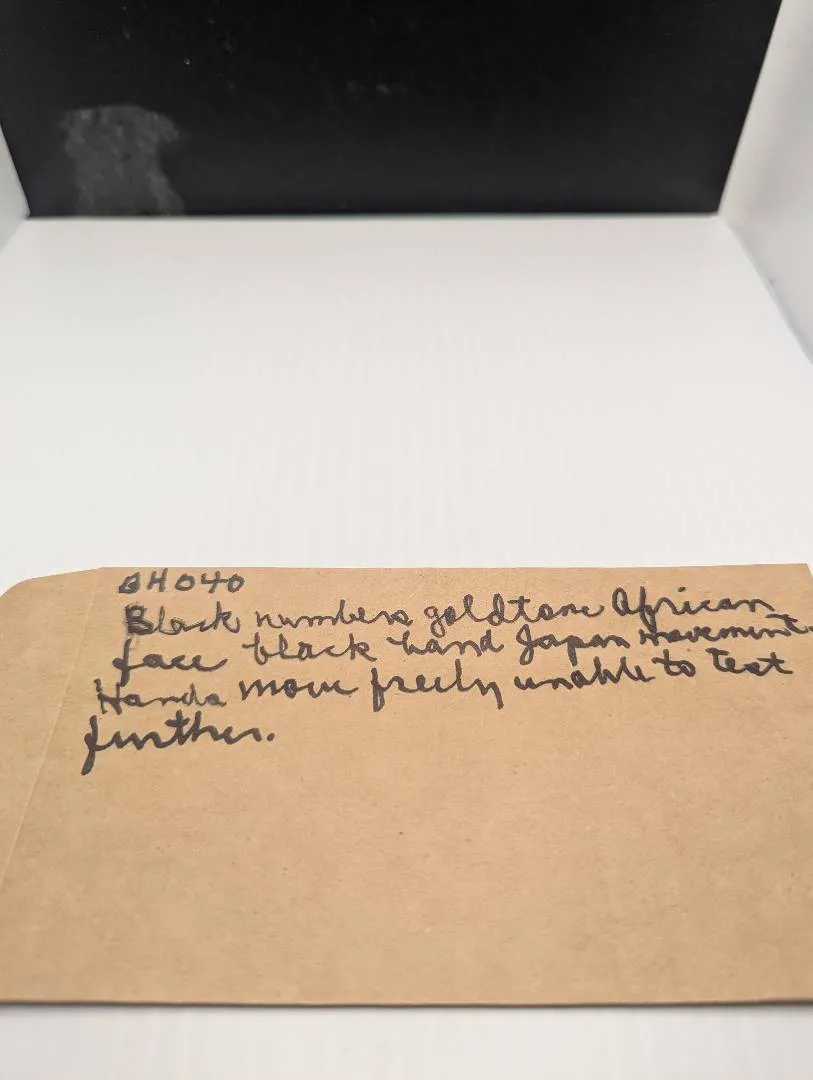 BH040
Black numbers goldtone African
face black hand Japan movement.
Hands move freely unable to test
further.